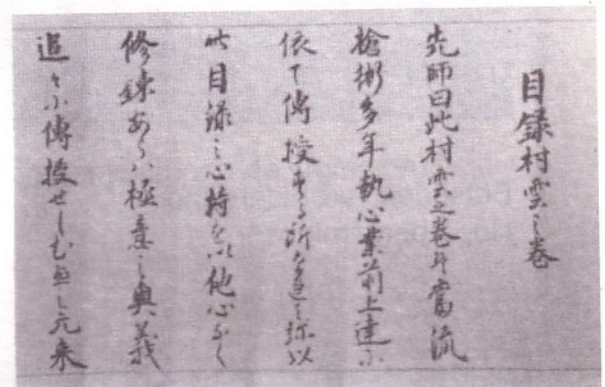 目録村雲之巻
先師曰此村雲之巻者當流
槍術多年執心業前上達ニ
依て傳授する所也追て弥以
此目録之心持を以他心なく
修錬あらハ極意之奥義
追々小傳授せしむ也し元来